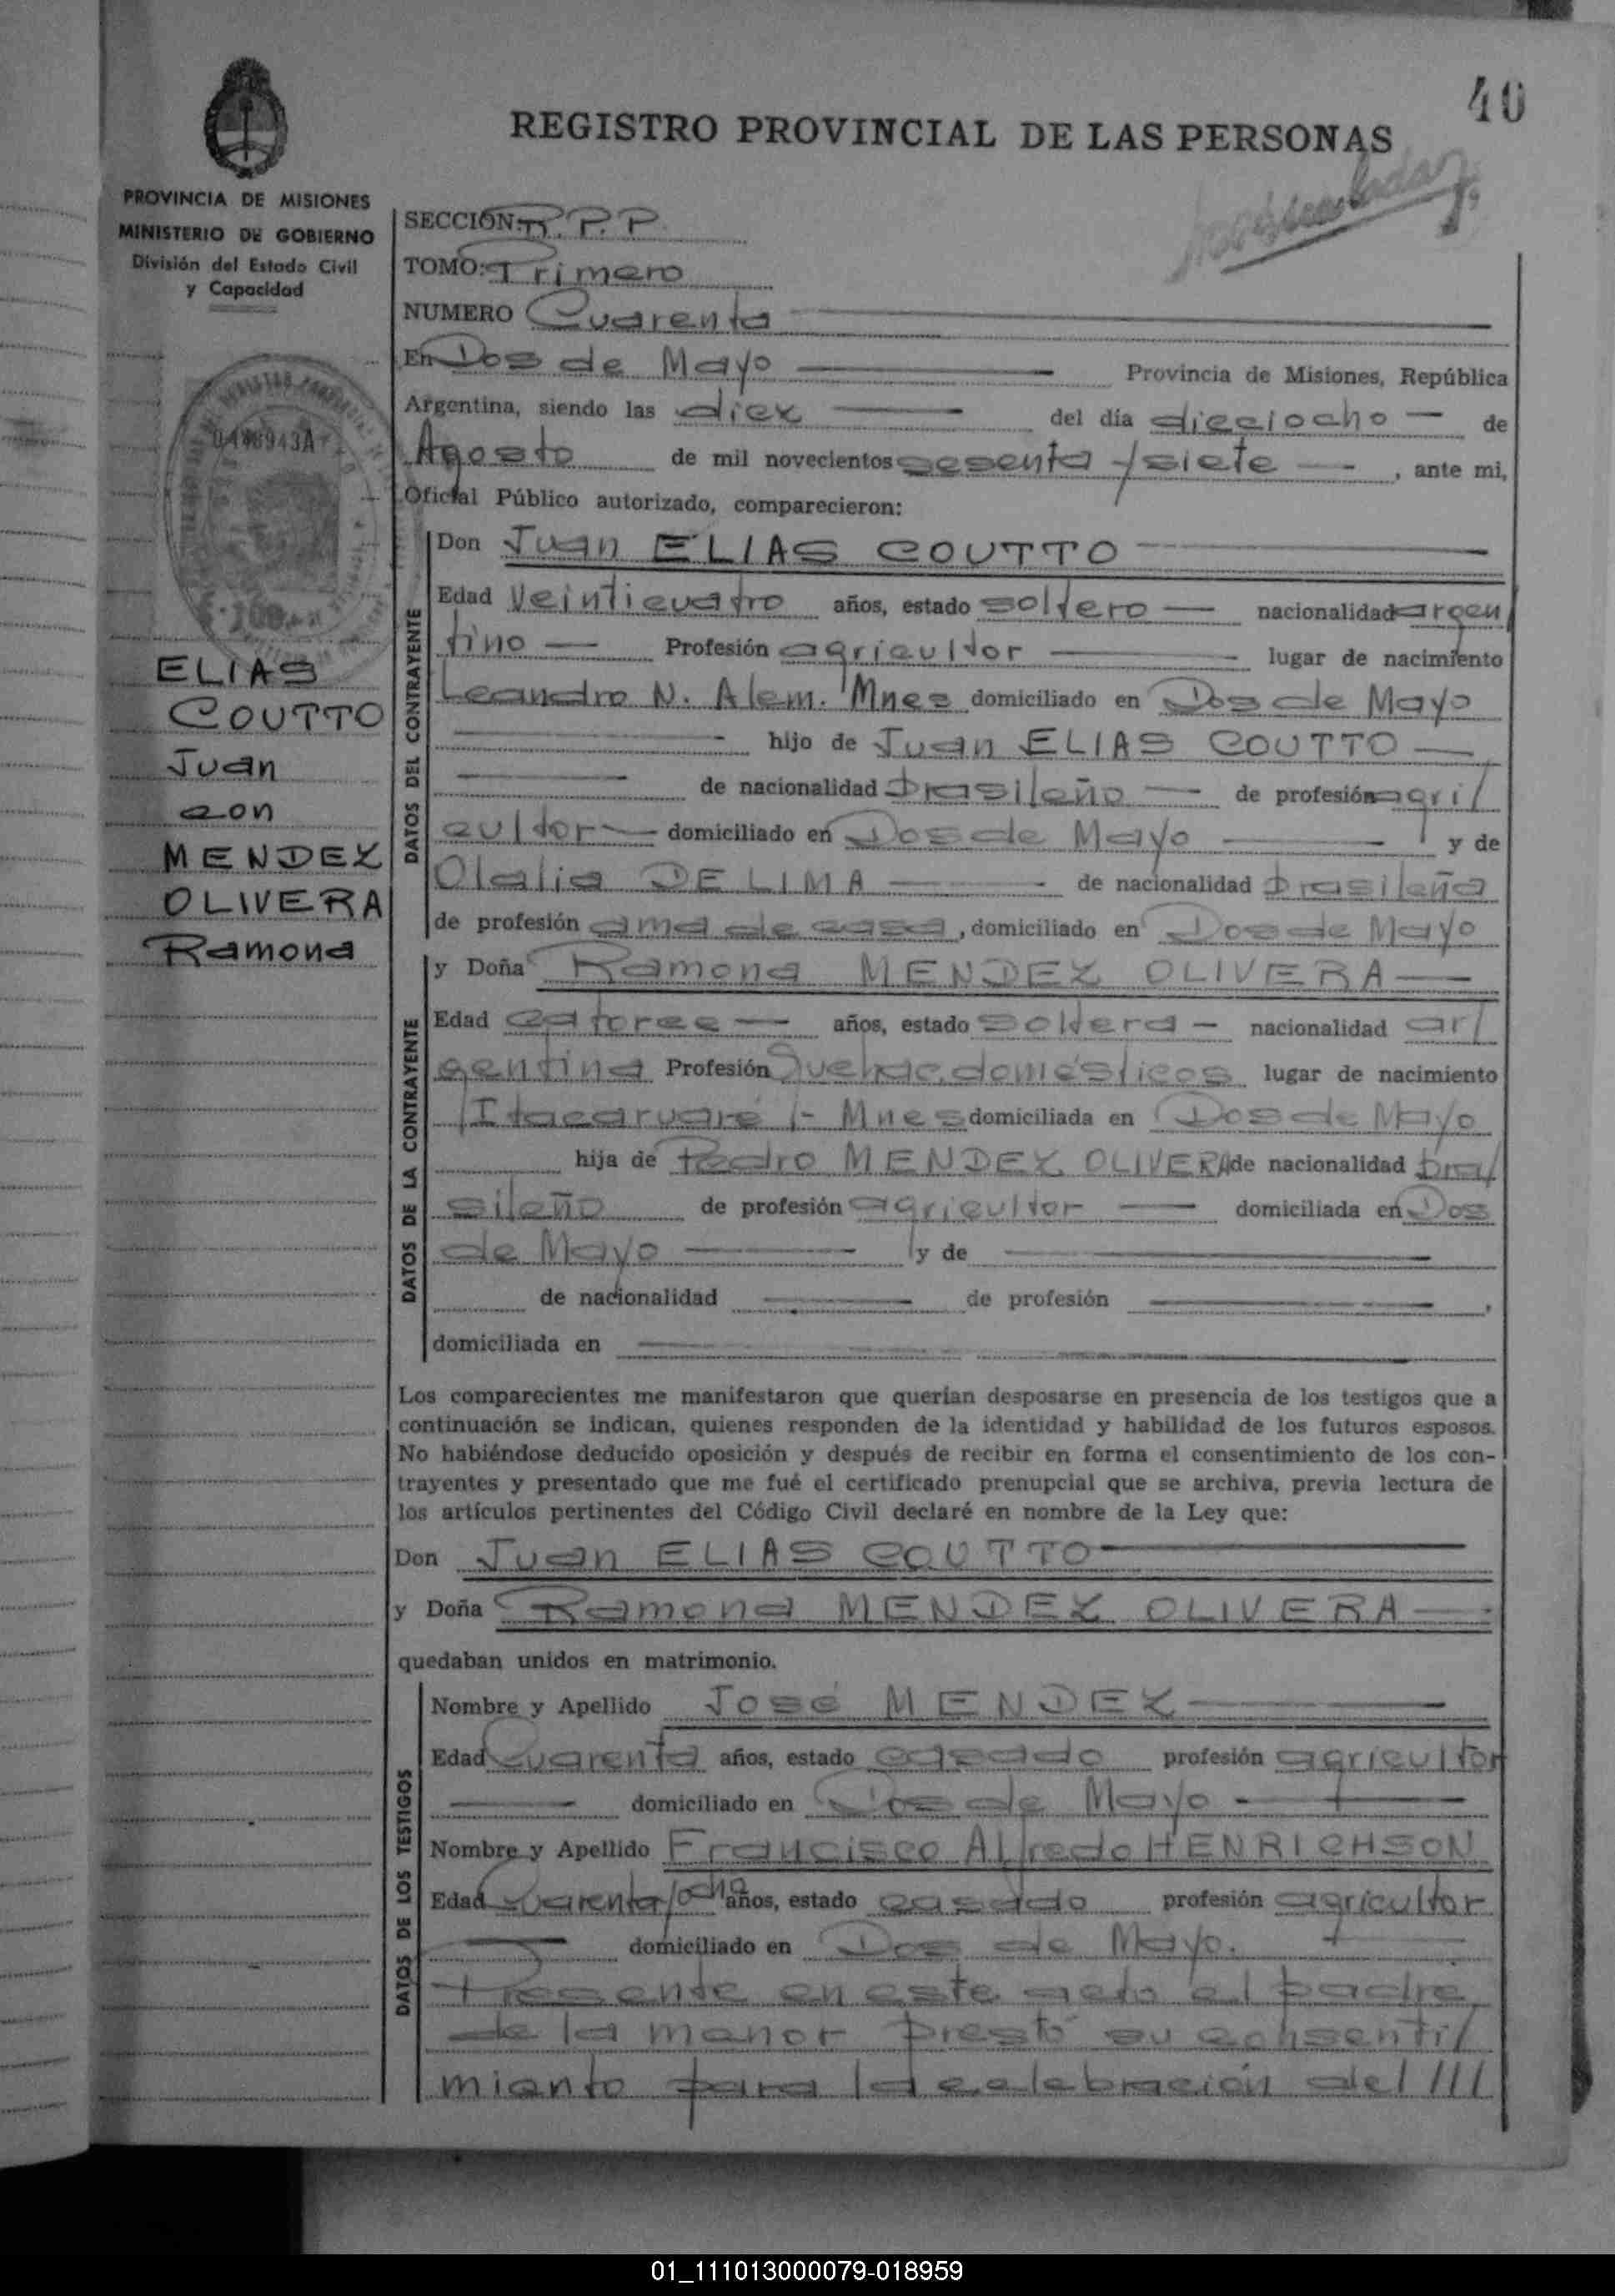 40
REGISTRO PROVINCIAL DE LAS PERSONAS
PROVINCIA DE MISIONES
MINISTERIO DE GOBIERNO
División del Estado Civil
y Capacidad
SECCIÓN: R. P. P
TOMO: Primero
NUMERO Cuarenta
En Dos de Mayo Provincia de Misiones, República
Argentina, siendo las diez del día dieciocho de
Agosto de mil novecientos sesenta/siete, ante mi,
Oficial Público autorizado, comparecieron:
0446943A
ELIAS
COUTTO
Juan
con
MENDEZ
OLIVERA
Ramona
DATOS DEL CONTRAYENTE
Don Juan ELIAS COUTTO
Edad Veinticuatro años, estado soltero nacionalidad argen/
tino Profesión agricultor lugar de nacimiento
Leandro N. Alem. Mnes domiciliado en Dos de Mayo
hijo de Juan ELIAS COUTTO
de nacionalidad brasileño de profesión agri/
cultor domiciliado en Dos de Mayo y de
Olalia DE LIMA de nacionalidad brasileña
de profesión ama de casa, domiciliado en Dos de Mayo
DATOS DE LA CONTRAYENTE
y Doña Ramona MENDEZ OLIVERA
Edad catorce años, estado soltera nacionalidad ar/
gentina Profesión Quehac. domésticos lugar de nacimiento
/Itacaruaré /- Mnes domiciliada en Dos de Mayo
hija de Pedro MENDEZ OLIVERA de nacionalidad bra/
sileño de profesión agricultor domiciliada en Dos
de Mayo y de
de nacionalidad de profesión ,
domiciliada en
Los comparecientes me manifestaron que querían desposarse en presencia de los testigos que a
continuación se indican, quienes responden de la identidad y habilidad de los futuros esposos.
No habiéndose deducido oposición y después de recibir en forma el consentimiento de los con-
trayentes y presentado que me fué el certificado prenupcial que se archiva, previa lectura de
los artículos pertinentes del Código Civil declaré en nombre de la Ley que:
Don Juan ELIAS COUTTO
y Doña Ramona MENDEZ OLIVERA
quedaban unidos en matrimonio.
DATOS DE LOS TESTIGOS
Nombre y Apellido José MENDEZ
Edad Cuarenta años, estado casado profesión agricultor
domiciliado en Dos de Mayo
Nombre y Apellido Francisco Alfredo HENRICHSON
Edad Cuarenta/ocho años, estado casado profesión agricultor
domiciliado en Dos de Mayo.
Presente en este acto el padre
de la menor prestó su consenti/
miento para la celebración del ///
01_111013000079-018959